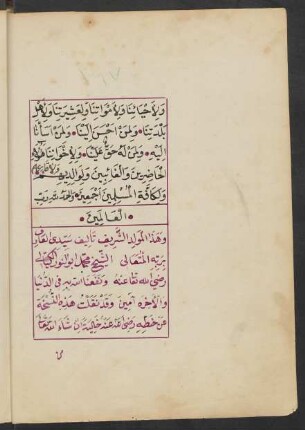 ولاحيائنا ولامواتنا ولعشيرتنا ولاهل
بلدتنا ولمن احسن الينا ولمن اسأنا
اليه ولمن له حق علينا ولاخواننا
الحاضرين والغائبين ولوالديهم
ولكافة المسلمين اجمعين والحمد لله رب
العالمين
وهذا المولد الشريف تأليف سيدي العارف
بربه المتعالي الشيخ محمد
رضي الله تعا عنه ونفعنا الله به في الدنيا
والاخره امين وقد نقلت هذه النسخة
من خطه رضي الله عنه ان شاء الله تعا